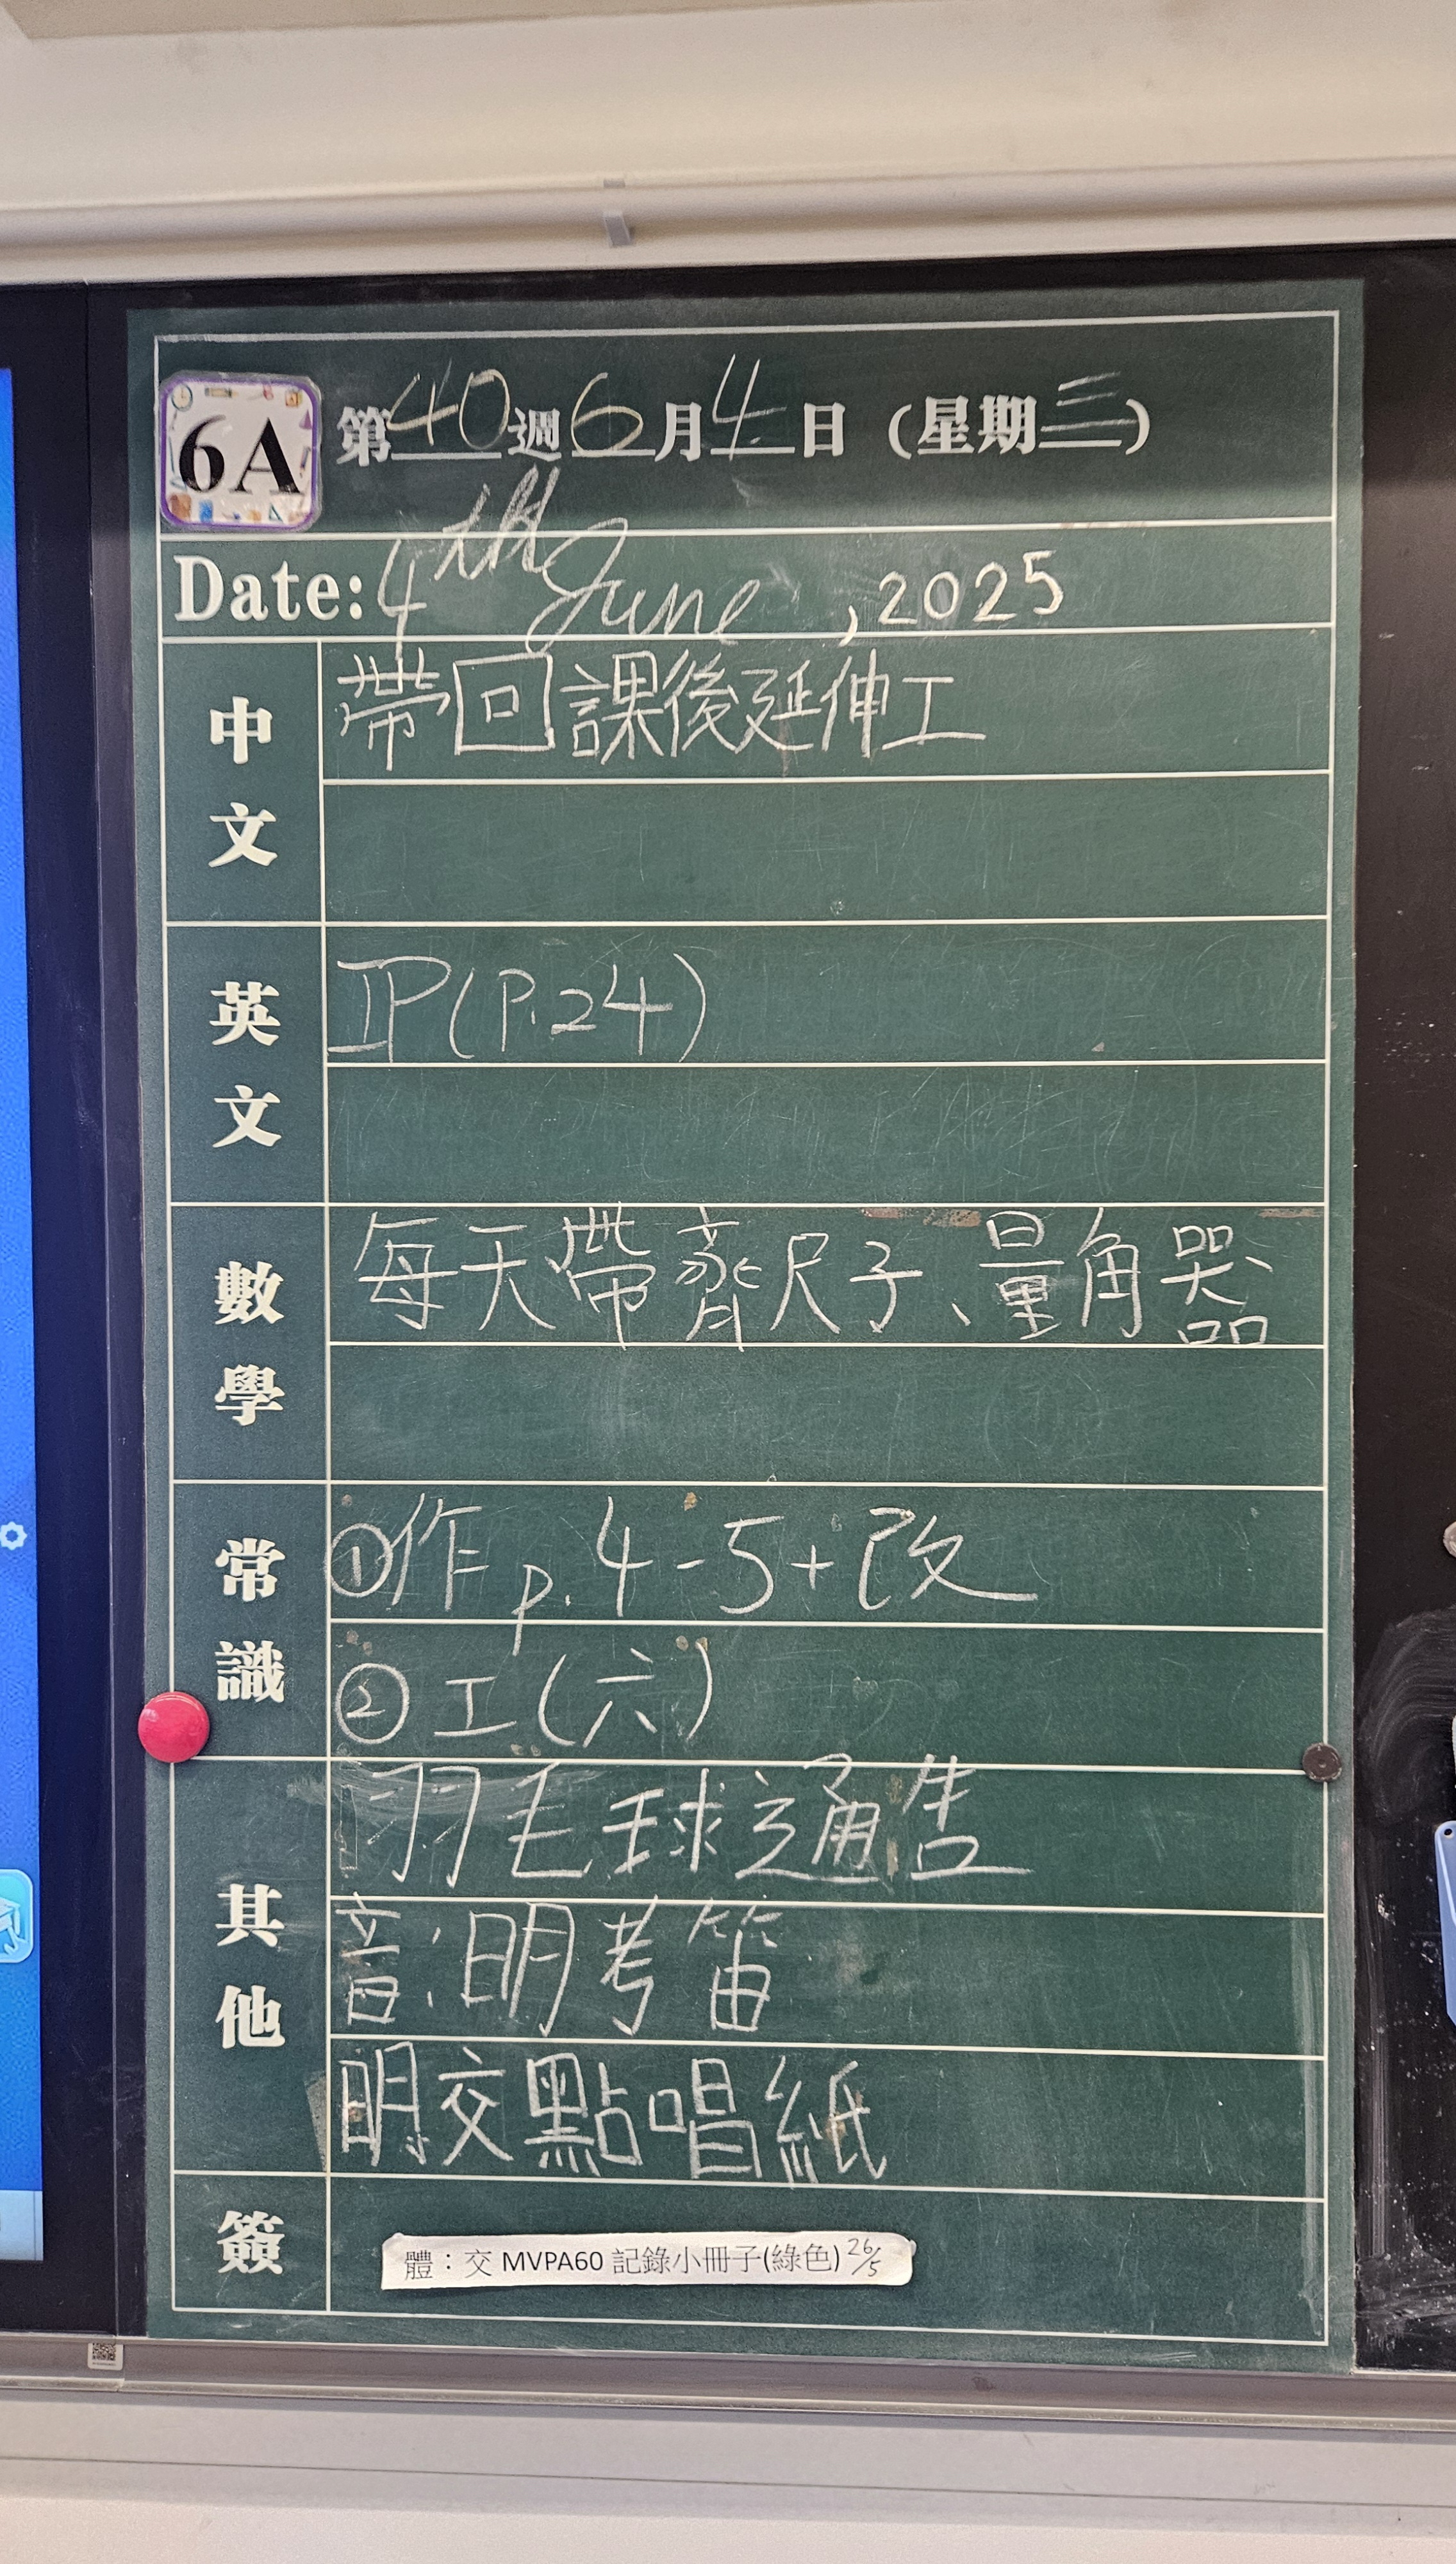 6A
第40週6月4日（星期三）
Date: 4th June, 2025
中文
帶回課後延伸工
英文
IP(P.24)
數學
每天帶齊尺子、量角器
常識
①作p.4-5+改
②工(六)
其他
羽毛球通告
音:明考笛
明交點唱紙
簽
體：交 MVPA60 記錄小冊子(綠色) 26/5